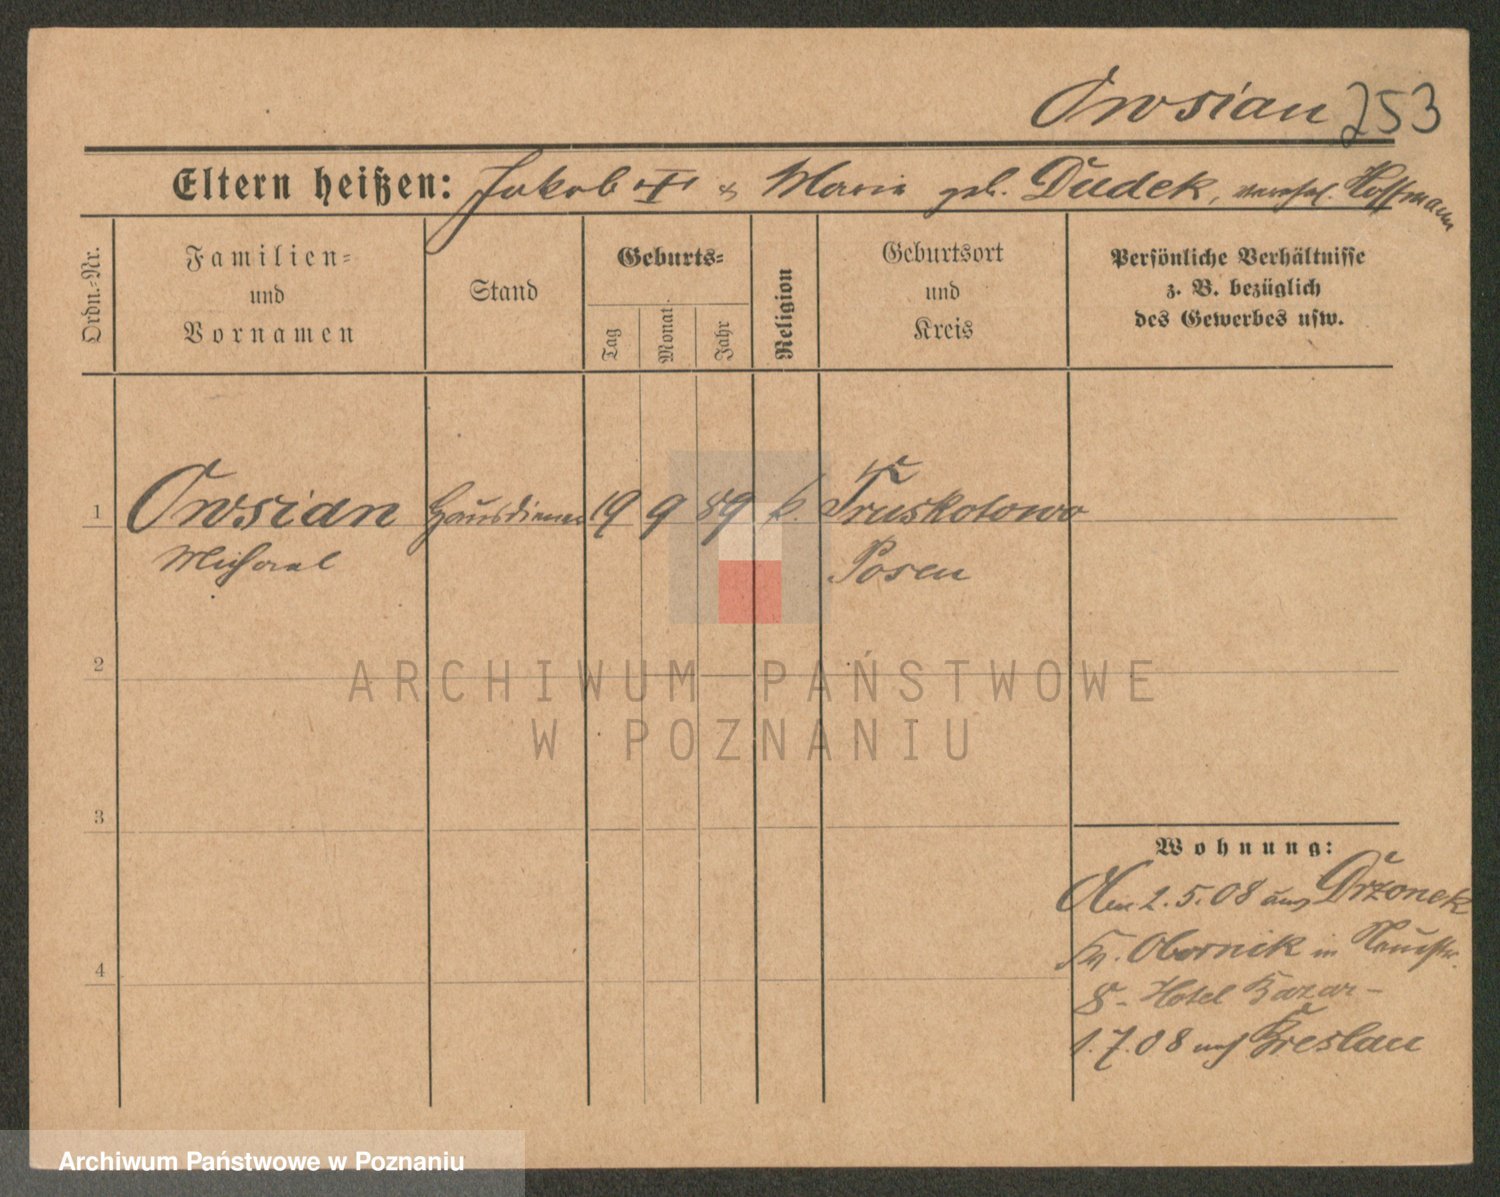 Owsian 253
Eltern heißen: Jakob & Maria geb. Dudek, Hoffmann
Ordn.-Nr.
Familien-
und
Vornamen
Stand
Geburts-
Tag
Monat
Jahr
Religion
Geburtsort
und
Kreis
Persönliche Verhältnisse
z. B. bezüglich
des Gewerbes usw.
1 Owsian Hausdiener 19 9 89 k. Truskotowo
Michael Posen
2
3
4
ARCHIWUM PAŃSTWOWE
W POZNANIU
Wohnung:
Am 2.5.08 aus Držonek
Kr. Obornik in Neuestr.
8 - Hotel Bazar -
1.7.08 nach Breslau
Archiwum Państwowe w Poznaniu